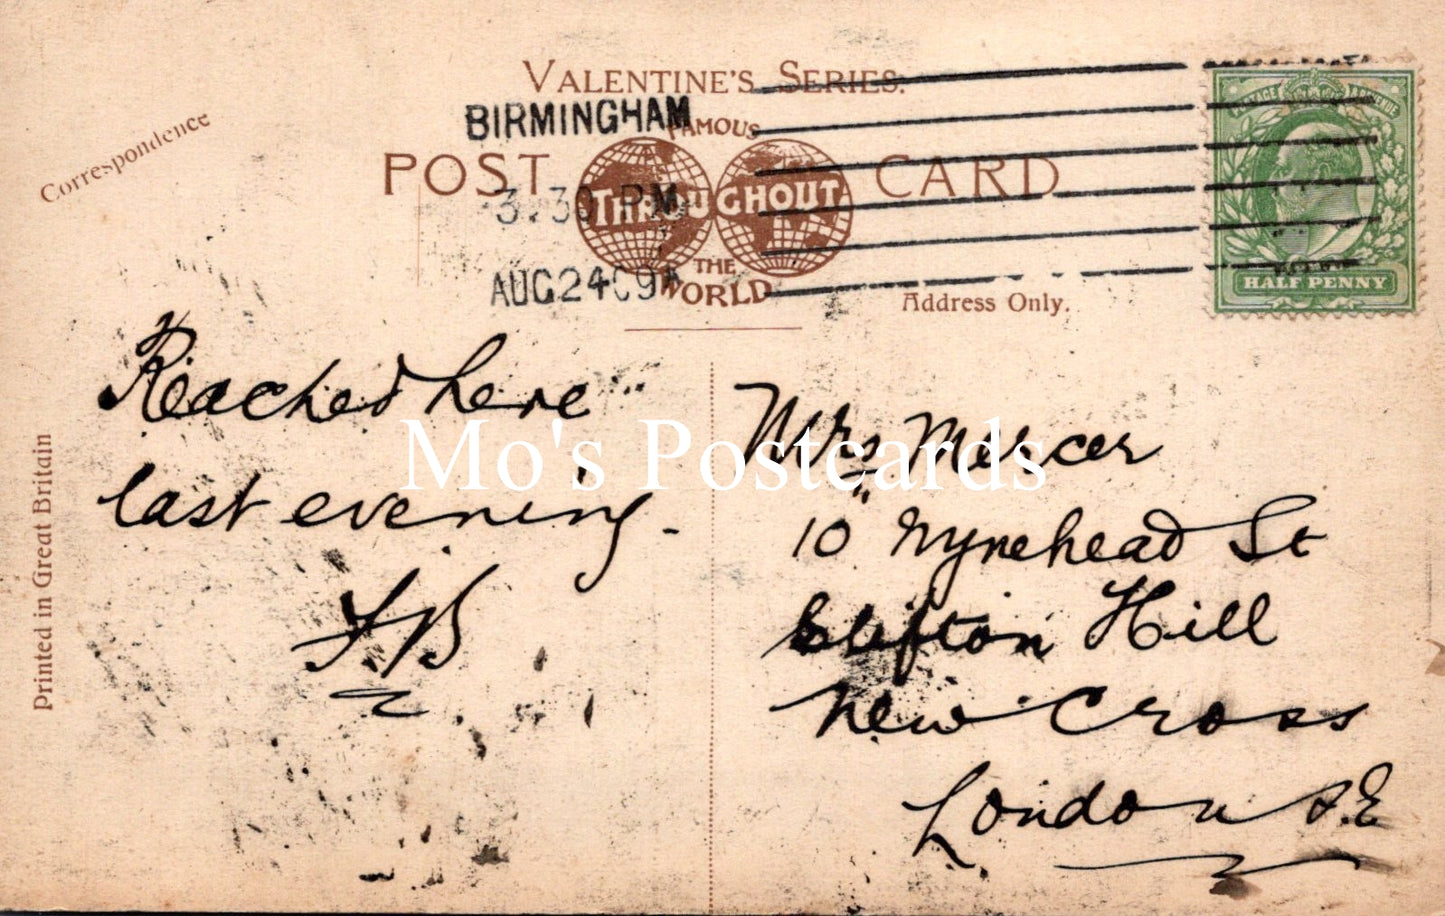 VALENTINE'S SERIES.
BIRMINGHAM
FAMOUS
Correspondence
POST CARD
3.30 PM
THROUGHOUT
THE
WORLD
AUG 24 09
Address Only.
POSTAGE REVENUE
HALF PENNY
Printed in Great Britain
Reached here
last evening.
F.B
Mrs Mercer
10 Nynehead St
Clifton Hill
New Cross
London S.E
Mo's Postcards